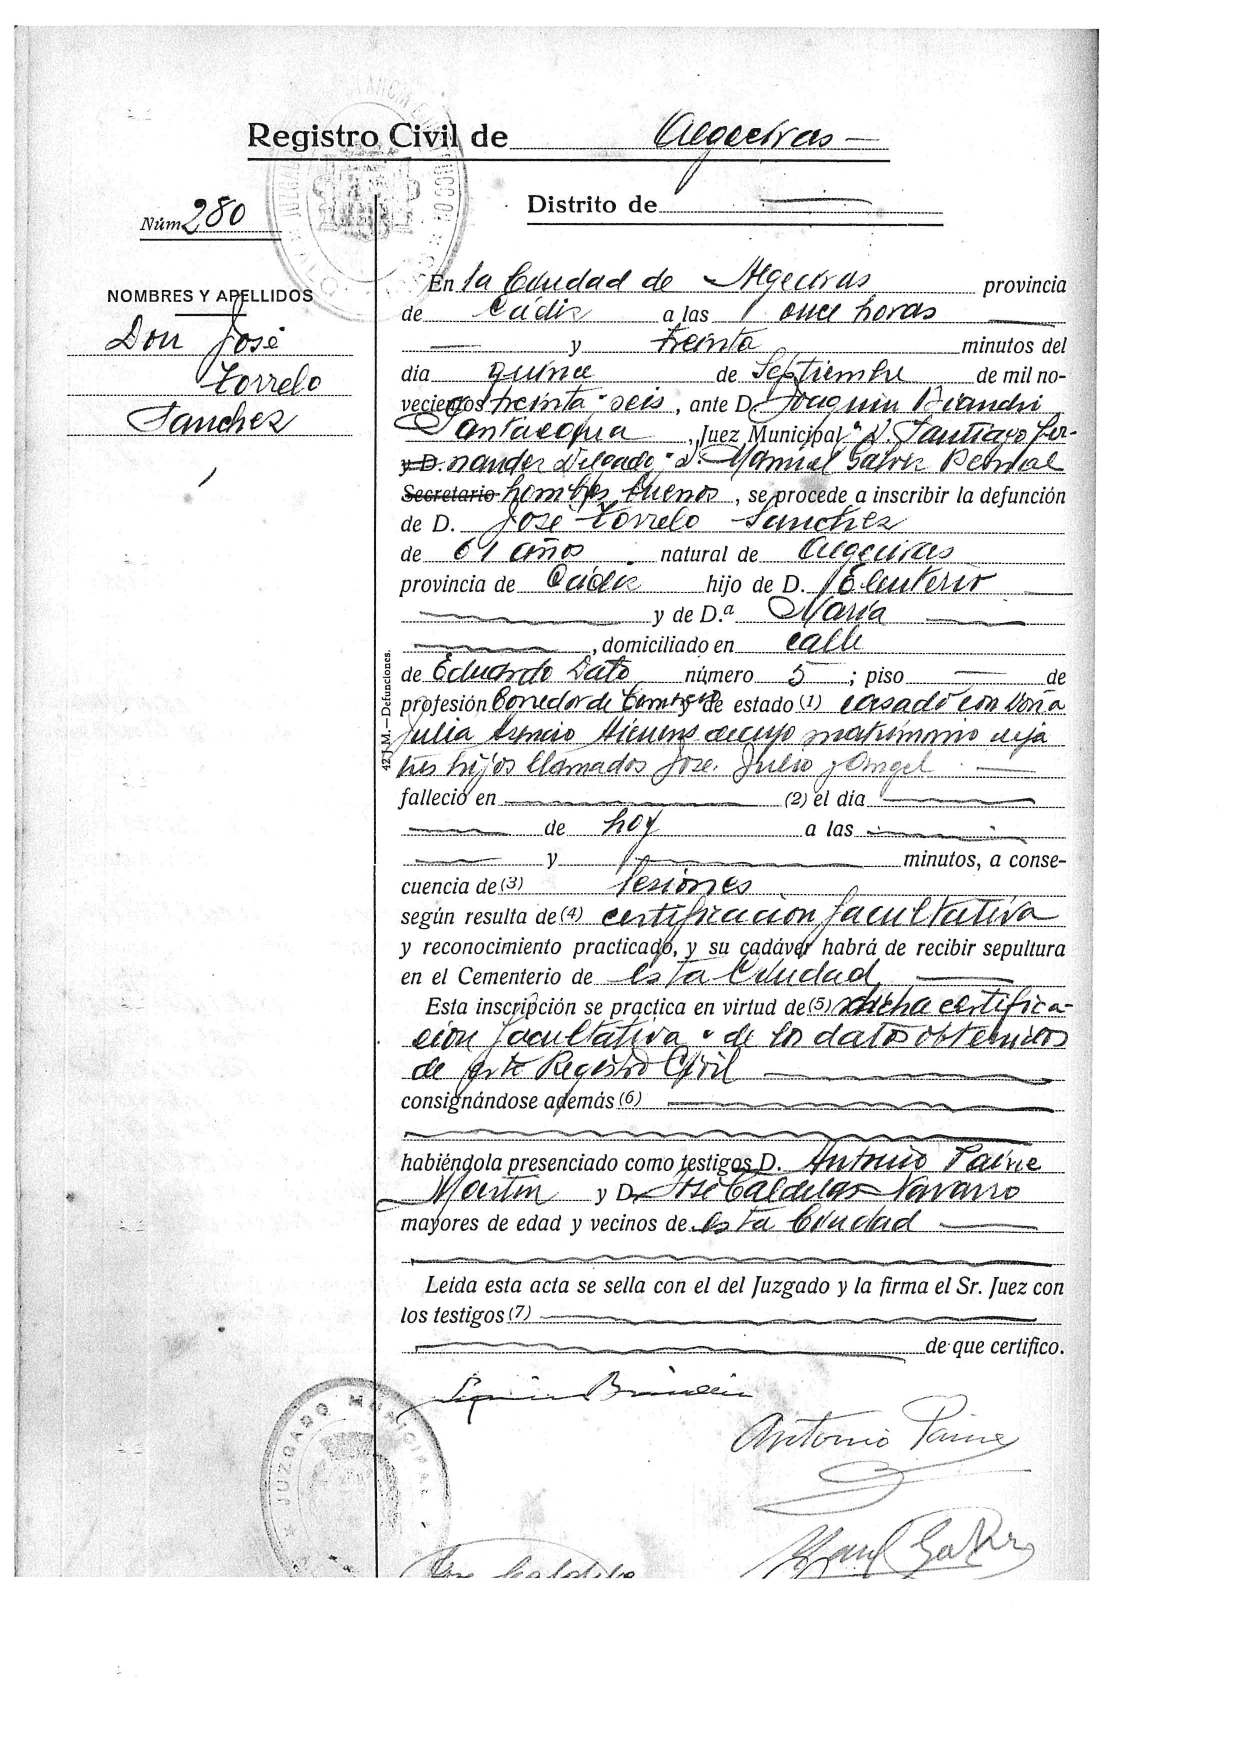 Registro Civil de Algeciras
Distrito de
Núm 280
NOMBRES Y APELLIDOS
Don José
Torrelo
Sanchez
En la Ciudad de Algeciras provincia
de Cádiz a las once horas
y treinta minutos del
día quince de Septiembre de mil no-
vecientos treinta y seis, ante D. Joaquin
, Juez Municipal D. Santiago Fer-
y D. nandez Delgado D. Manuel Galvez Bernal
Secretario hombres buenos, se procede a inscribir la defunción
de D. José Torrelo Sanchez
de 61 años natural de Algeciras
provincia de Cádiz hijo de D. Eleuterio
y de D.ª María
, domiciliado en calle
de Eduardo Dato número 5 ; piso de
profesión Corredor de de estado (1) casado con Doña
Julia Asencio de cuyo matrimonio deja
tres hijos llamados José, Julio y Angel
falleció en (2) el día
de hoy a las
y minutos, a conse-
cuencia de (3) lesiones
según resulta de (4) certificacion facultativa
y reconocimiento practicado, y su cadáver habrá de recibir sepultura
en el Cementerio de esta Ciudad
Esta inscripción se practica en virtud de (5) dicha certifica-
cion facultativa y de los datos obtenidos
de este Registro Civil
consignándose además (6)
habiéndola presenciado como testigos D. Antonio Paine
Martin y D. José Caldelas Navarro
mayores de edad y vecinos de esta Ciudad
Leída esta acta se sella con el del Juzgado y la firma el Sr. Juez con
los testigos (7)
de que certifico.
42 J.M.—Defunciones.
Antonio Paine
JUZGADO MUNICIPAL